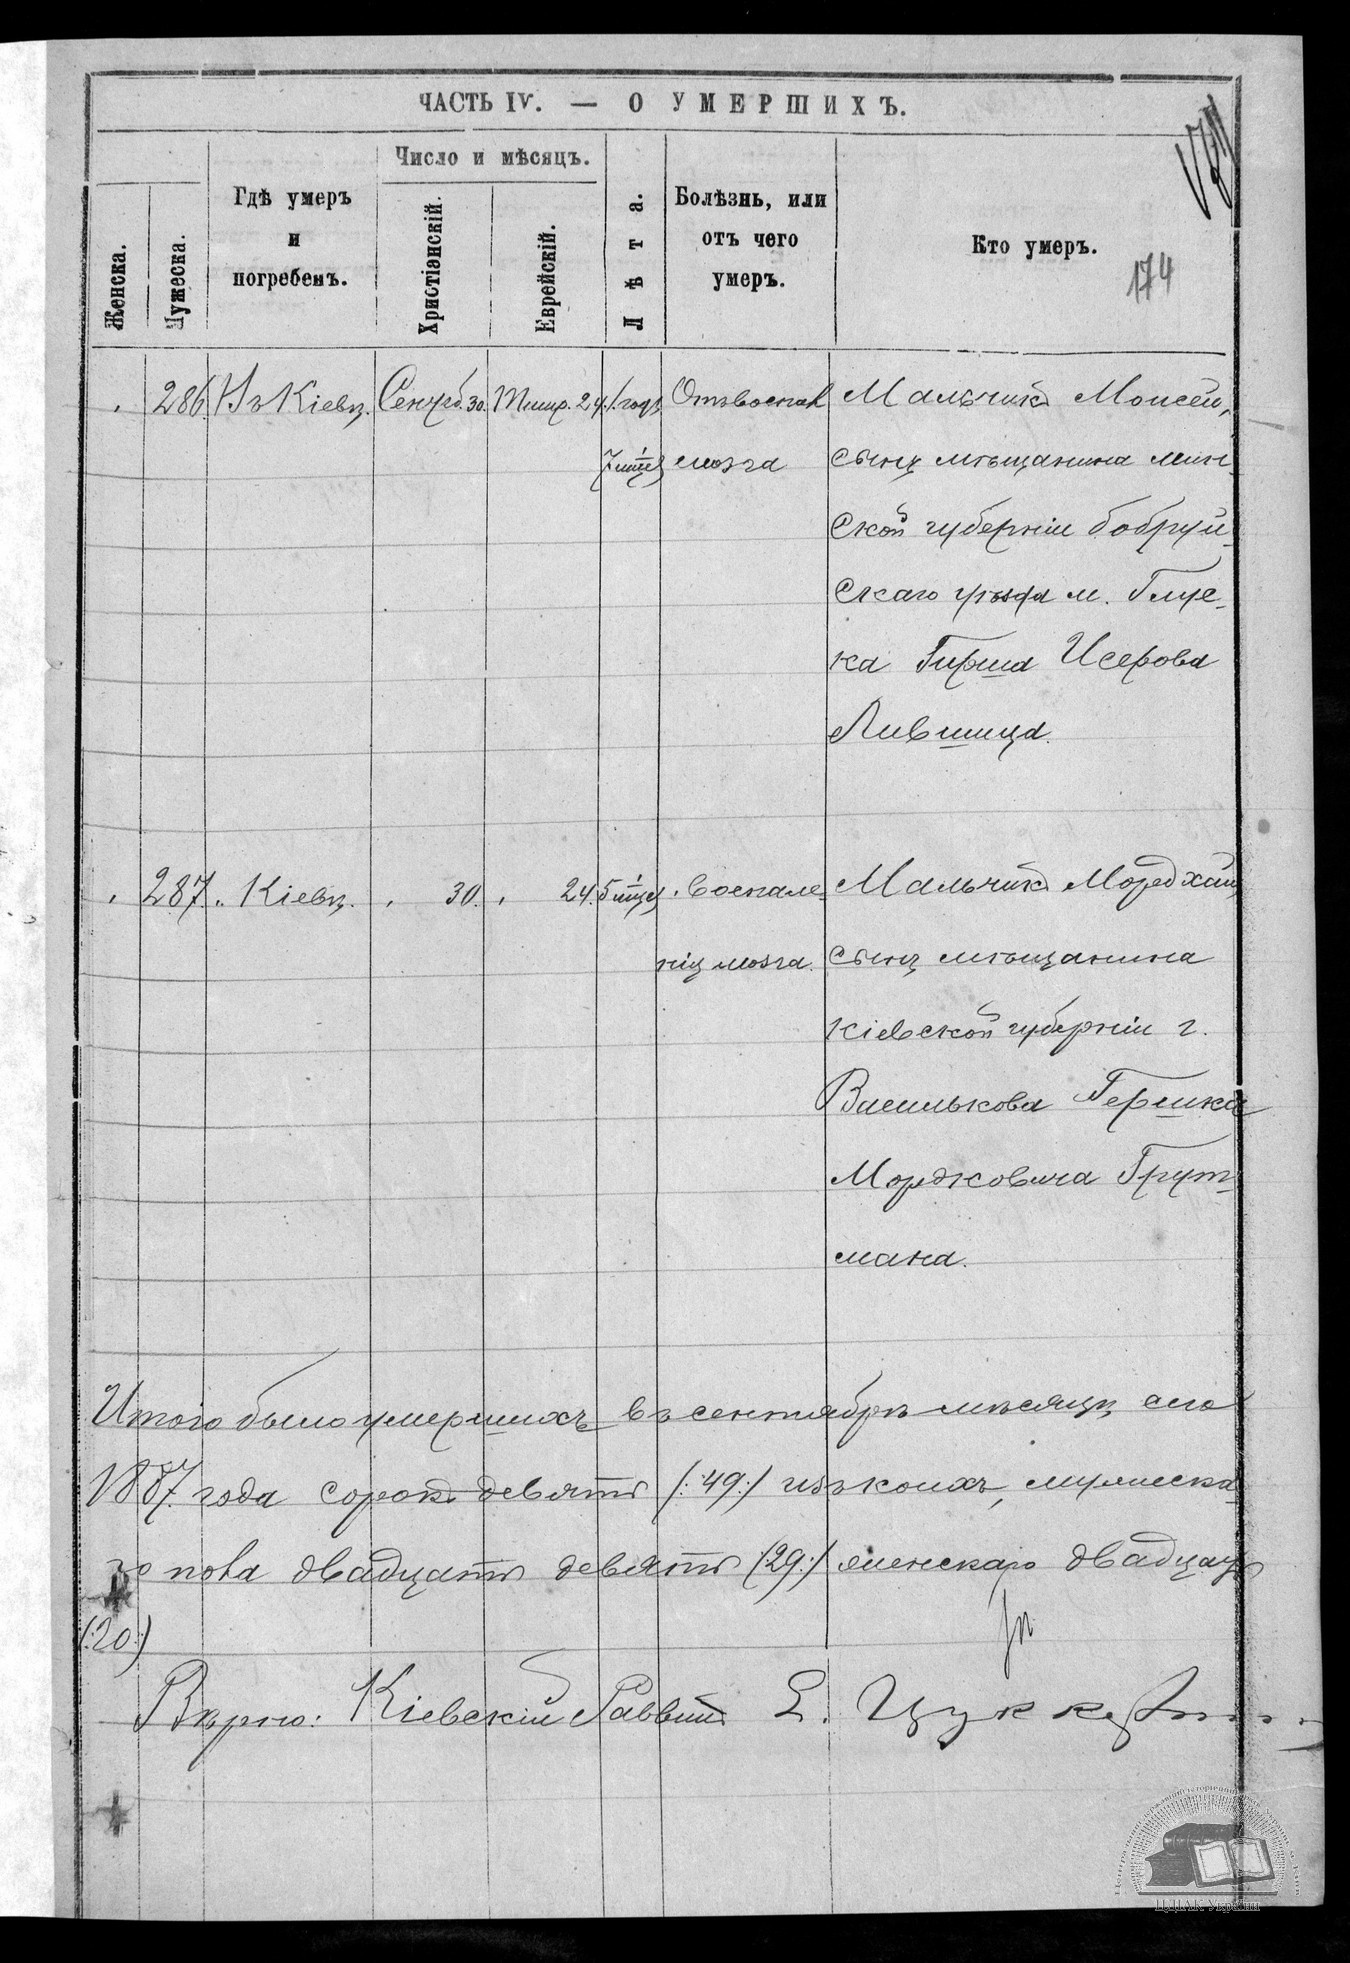 ЧАСТЬ IV. — О УМЕРШИХЪ.
Женска.
Мужеска.
Гдѣ умеръ
и
погребенъ.
Число и мѣсяцъ.
Христіанскій.
Еврейскій.
Лѣта.
Болѣзнь, или
отъ чего
умеръ.
Кто умеръ.
174
286. Въ Кіевѣ. Сентяб. 30. Тишр. 24. 1 годъ Отъ воспал. Мальчикъ Моисей,
7 мѣся. мозга сынъ мѣщанина Мин-
ской губерніи Бобруй-
скаго уѣзда м. Глус-
ка Гирша Исерова
Лившица.
287. " Кіевѣ. " 30. " 24. 5 мѣся. " Воспале- Мальчикъ Мордхай,
нія мозга. сынъ мѣщанина
Кіевской губерніи г.
Василькова Гершка
Мордковича Грут-
мана.
Итого было умершихъ въ сентябрѣ мѣсяцѣ сего
1887 года сорокъ девять (:49:) изъ коихъ, мужеска-
го пола двадцать девять (:29:) женскаго двадцать
(:20:)
Вѣрно: Кіевскій Раввинъ Е. Цуккерман
ЦДІАК України